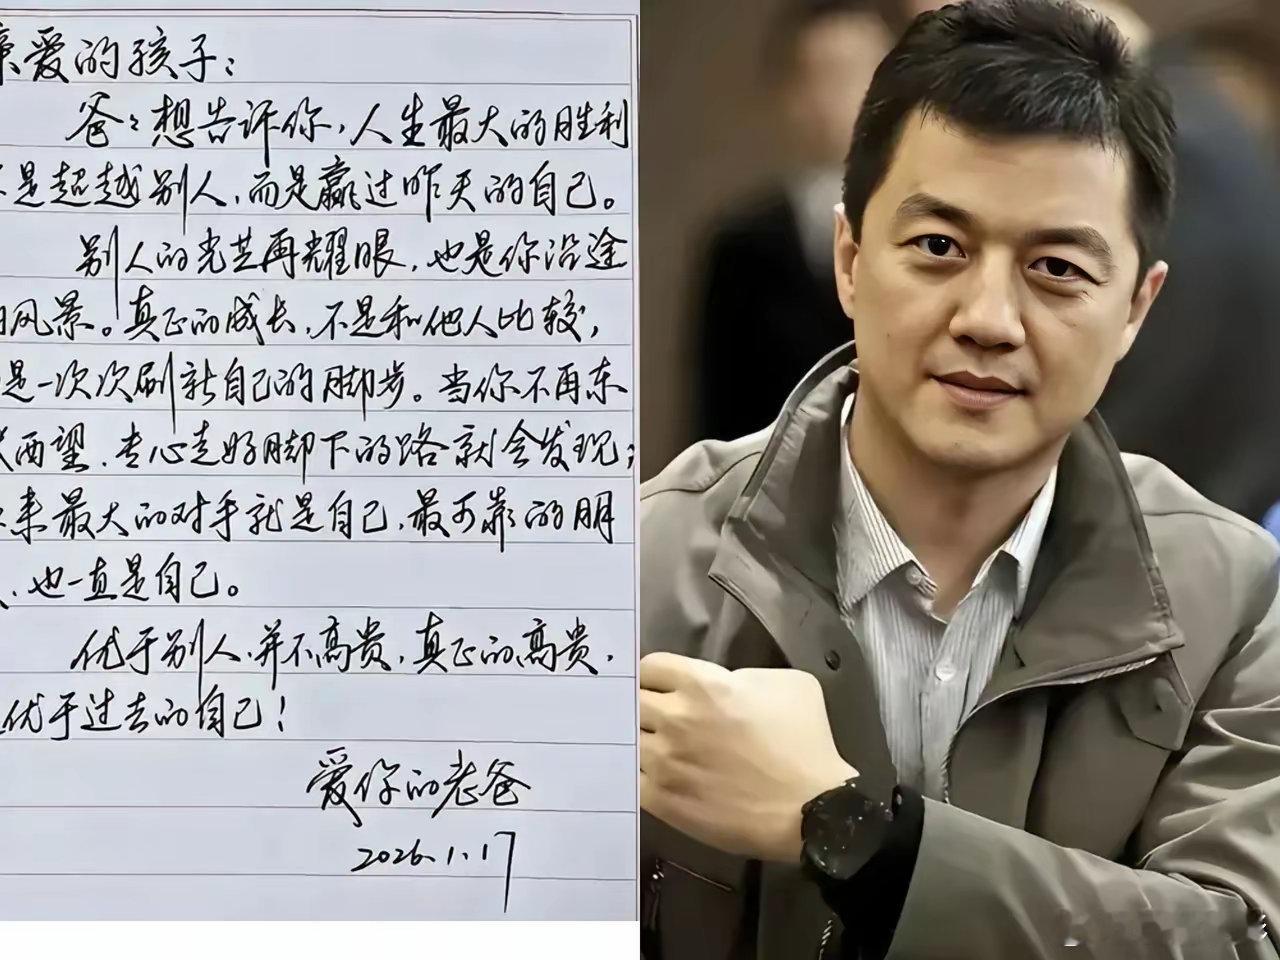 亲爱的孩子：
爸爸想告诉你，人生最大的胜利
不是超越别人，而是赢过昨天的自己。
别人的光芒再耀眼，也是你沿途
的风景。真正的成长，不是和他人比较，
而是一次次刷新自己的脚步。当你不再东
张西望，专心走好脚下的路就会发现：
原来最大的对手就是自己，最可靠的朋
友，也一直是自己。
优于别人，并不高贵，真正的高贵，
是优于过去的自己！
爱你的老爸
2026.1.17